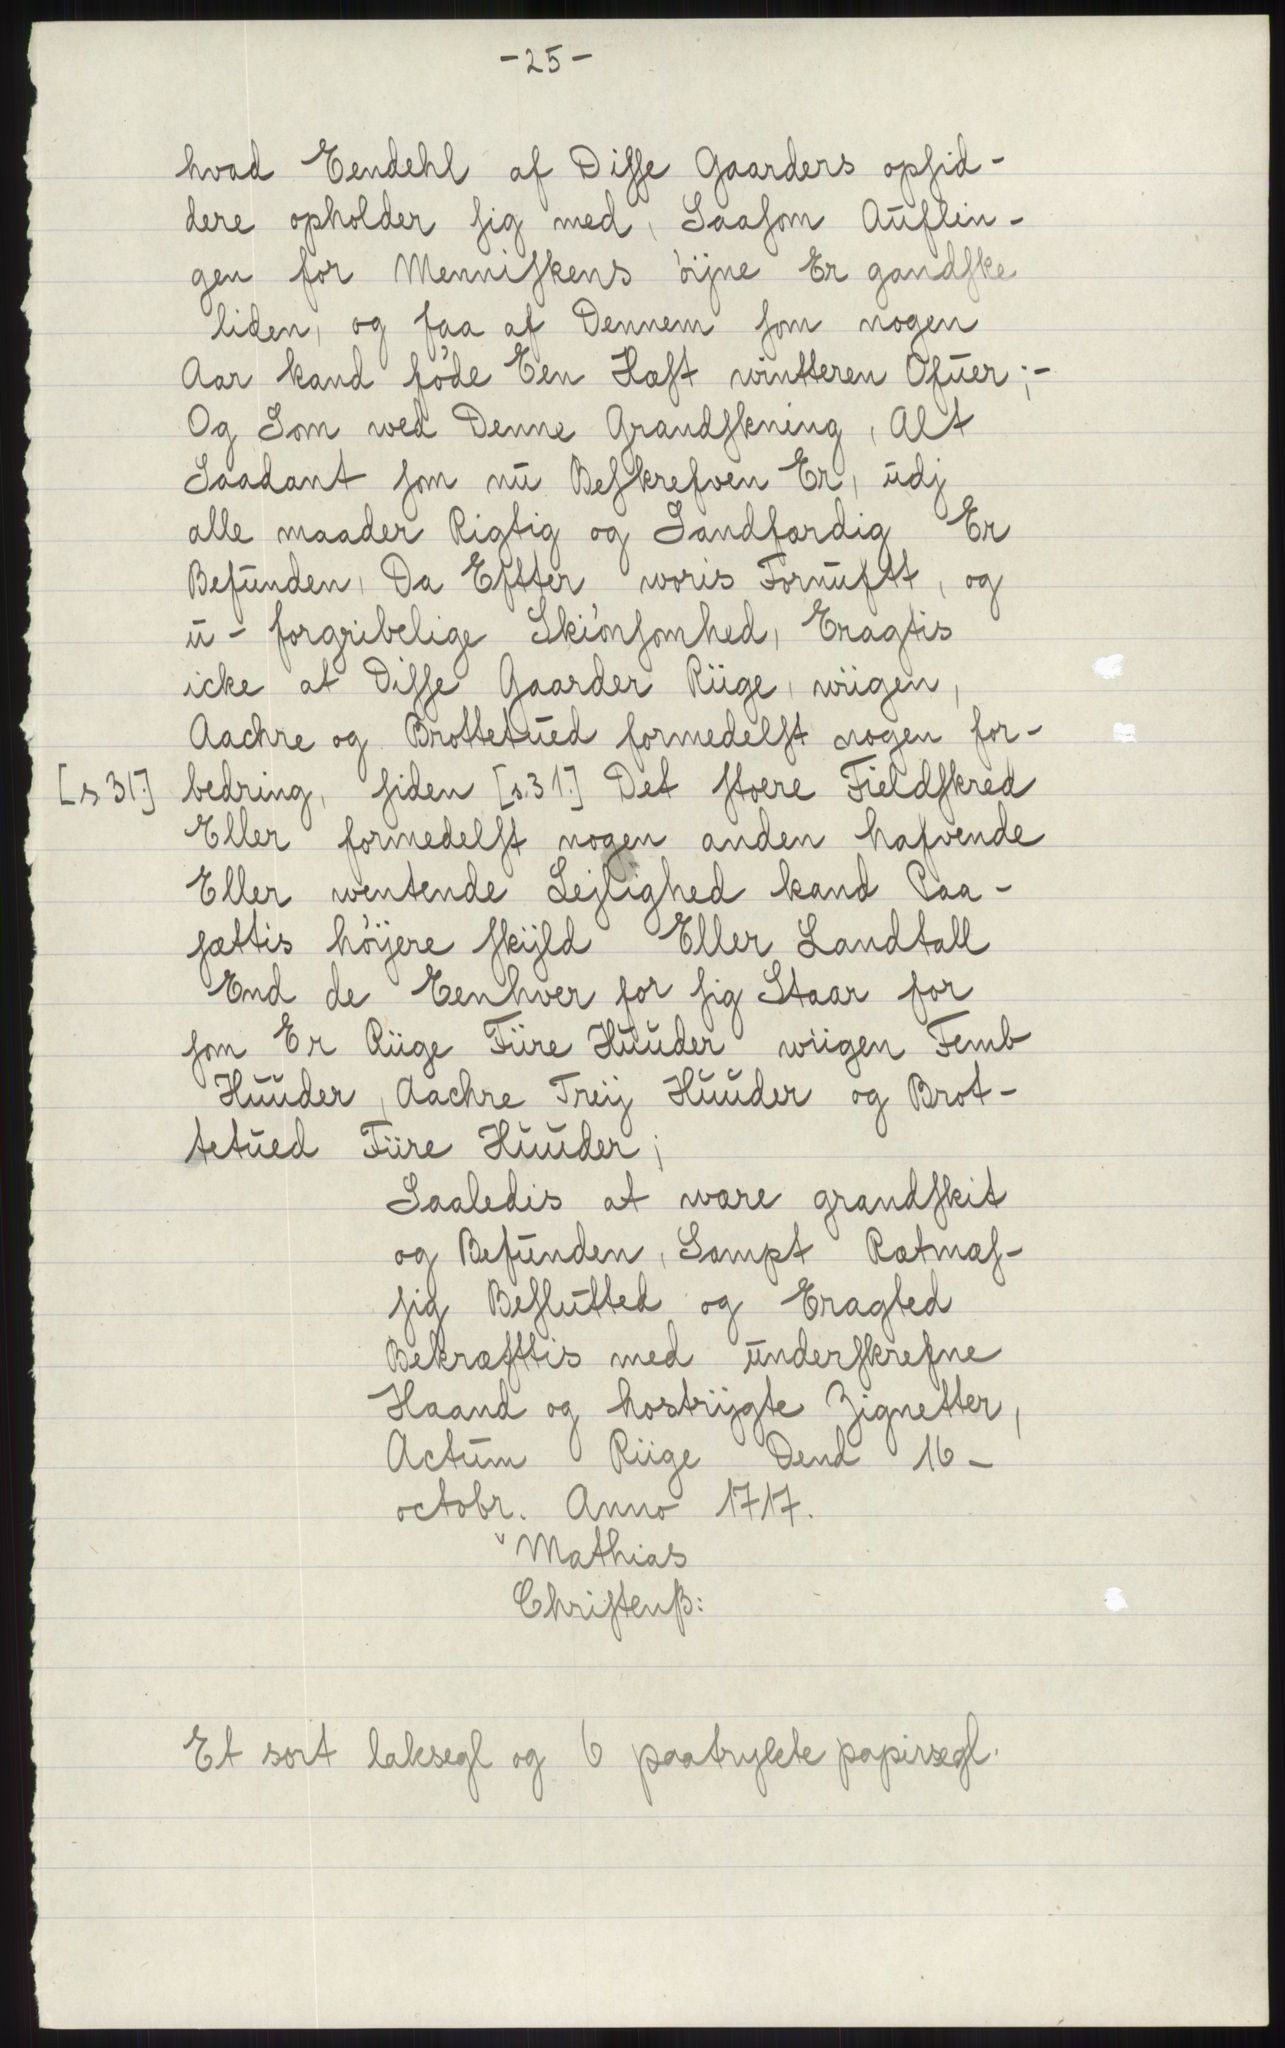 -25-
hvad Eendehl af Disse Gaarders opsid-
dere opholder sig med, Saasom Auflin-
gen for Menniskens öijne Er gandske
liden, og faa af Dennem som nogen
Aar kand føde Een Hæst wintteren Ofuer;-
Og Som wed Denne Grandskning, Alt
Saadant som nu Beskrefven Er, udj
alle maader Rigtig og Sandfærdig Er
Befunden, Da Efter woris Fornuftt, og
u- forgribelige Skiønsomhed, Eragtis
icke at Disse Gaarder Riige, wiigen,
Aachre og Brottetued formedelst nogen for-
[s 31.] bedring, siden [s.31.] Det stoere Fieldskred
Eller formedelst nogen anden hafvende
Eller wentende Lejlighed kand Paa-
sættis höijere skijld Eller Landtall
End de Eenhver for sig Staar for
som Er Riige Fiire Huuder wiigen Femb
Huuder, Aachre Treij Huuder og Brot-
tetued Fiire Huuder;
Saaledis at wære grandskit
og Befunden, Sampt Rætmæs-
sig Besluttted og Eragted
Bekræfttis med underskrefne
Haand og hostrijgte Zignetter,
Actum Riige Dend 16-
octobr. Anno 1717.
Mathias
Christenß:
Et sort laksegl og 6 paatrykte papirsegl.